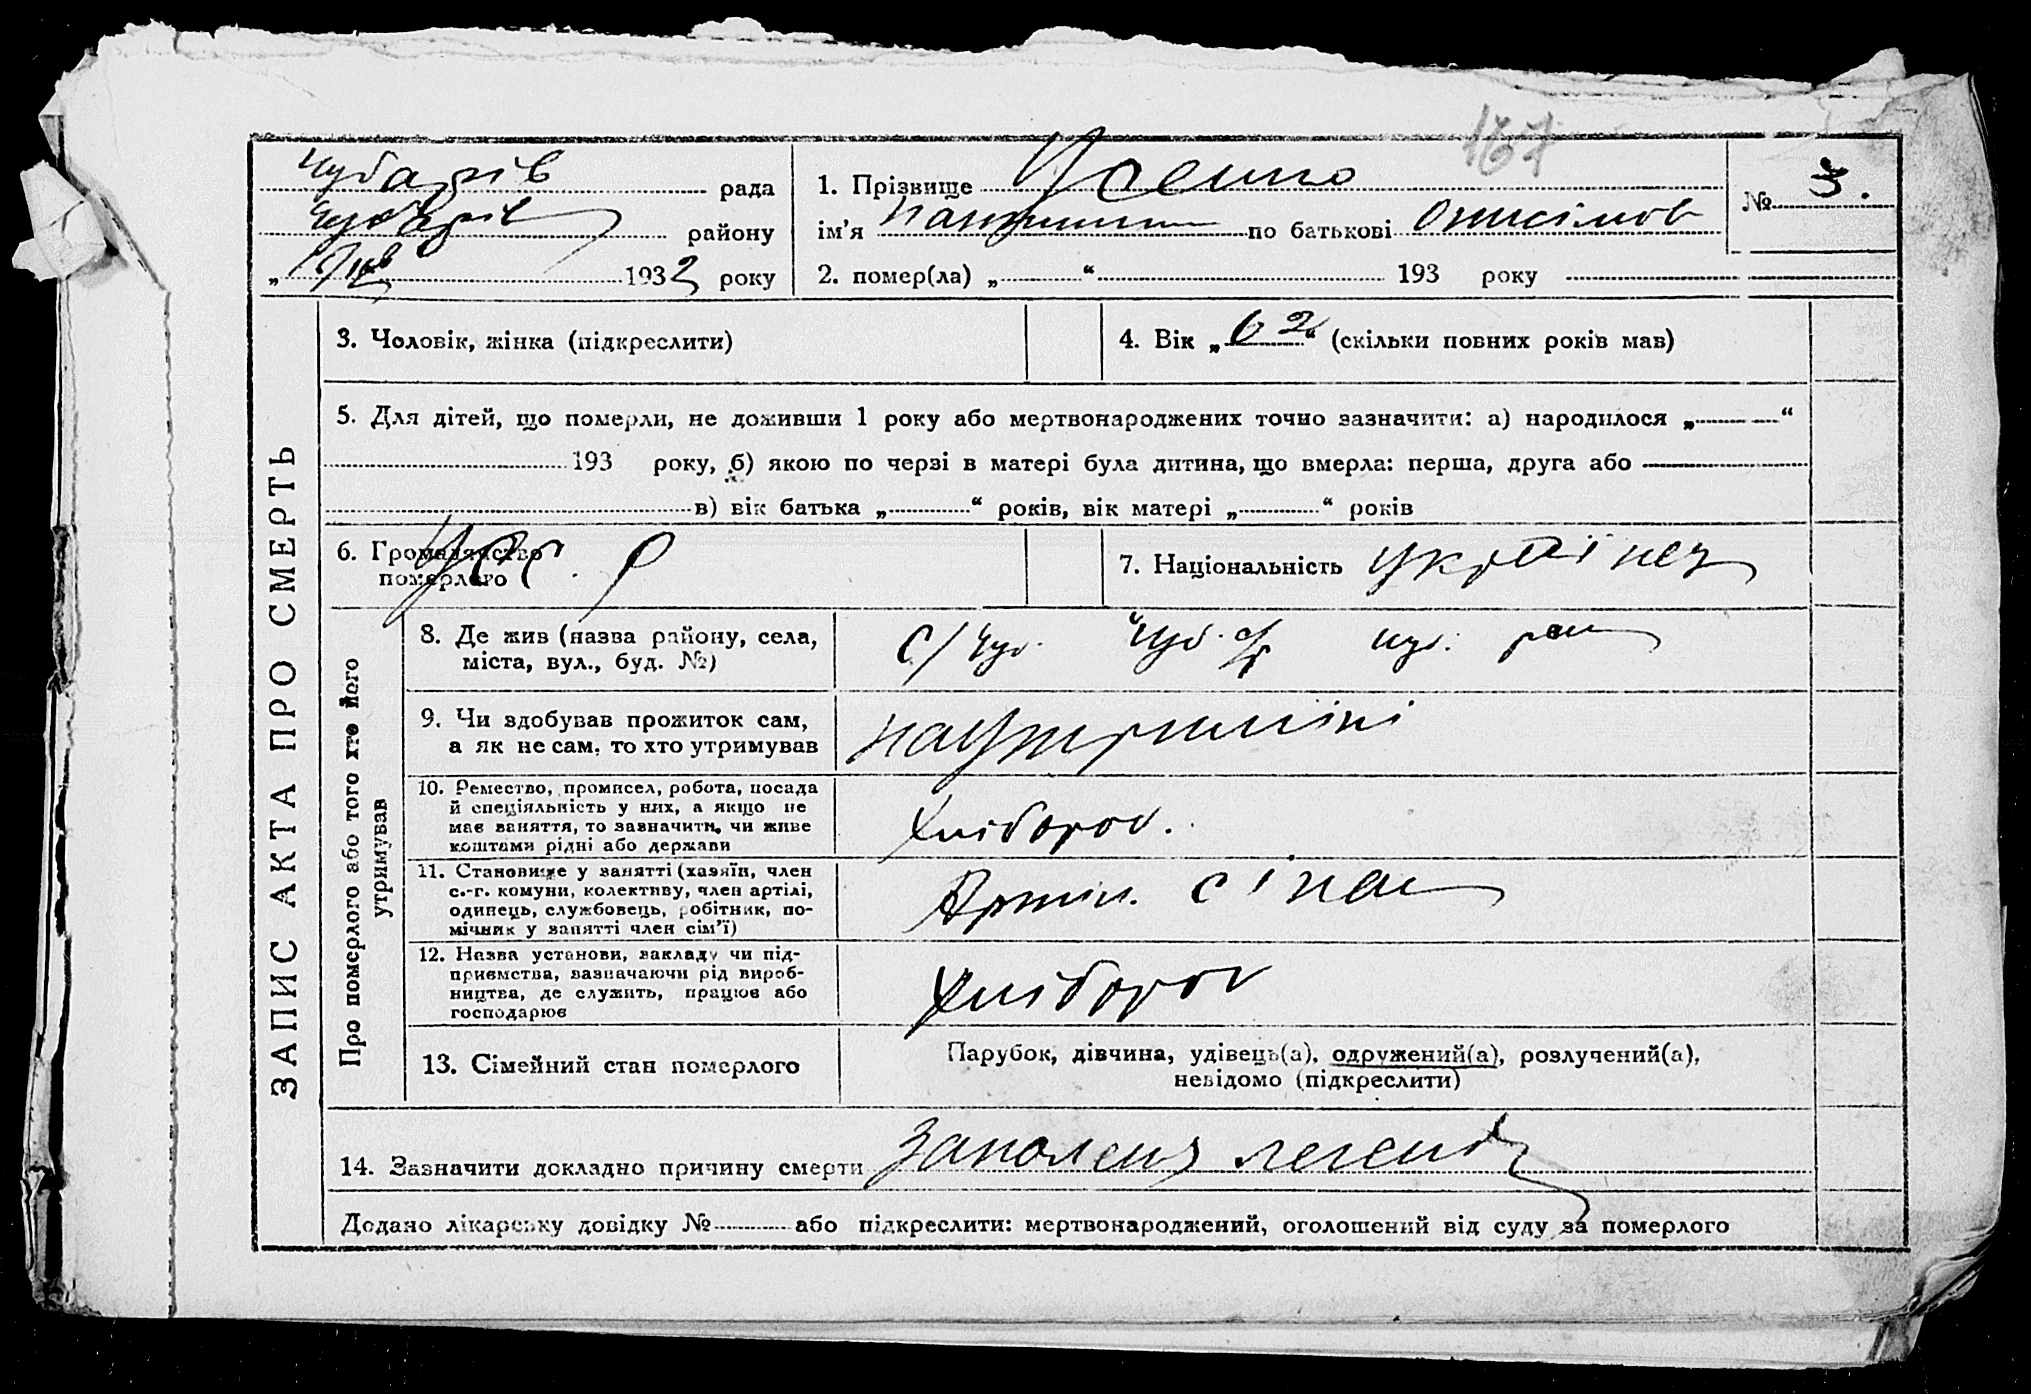 167
Чубарів рада
Чубарів району
„ 1932 року
1. Прізвище
ім’я по батькові Онисімов
№ 3.
2. помер(ла) „ “ 193 року
ЗАПИС АКТА ПРО СМЕРТЬ
3. Чоловік, жінка (підкреслити)
4. Вік „ 62 “ (скільки повних років мав)
5. Для дітей, що померли, не доживши 1 року або мертвонароджених точно зазначити: а) народилося „ “
193 року, б) якою по черзі в матері була дитина, що вмерла: перша, друга або
в) вік батька „ “ років, вік матері „ “ років
6. Громадянство
померлого
7. Національність українец
Про померлого або того хто його
утримував
8. Де жив (назва району, села,
міста, вул., буд. №)
с/Чуб. Чуб. с/р чуб. рай
9. Чи здобував прожиток сам,
а як не сам, то хто утримував
10. Ремество, промисел, робота, посада
й спеціяльність у них, а якщо не
має заняття, то зазначити, чи живе
коштами рідні або держави
Хлібороб.
11. Становище у занятті (хазяїн, член
с.-г. комуни, колективу, член артілі,
одинець, службовець, робітник, по-
мічник у занятті член сім’ї)
Артіл.
12. Назва установи, закладу чи під-
приємства, зазначаючи рід вироб-
ництва, де служить, працює або
господарює
Хлібороб
13. Сімейний стан померлого
Парубок, дівчина, удівець(а), одружений(а), розлучений(а),
невідомо (підкреслити)
14. Зазначити докладно причину смерти запаленя легенів
Додано лікарську довідку № або підкреслити: мертвонароджений, оголошений від суду за померлого